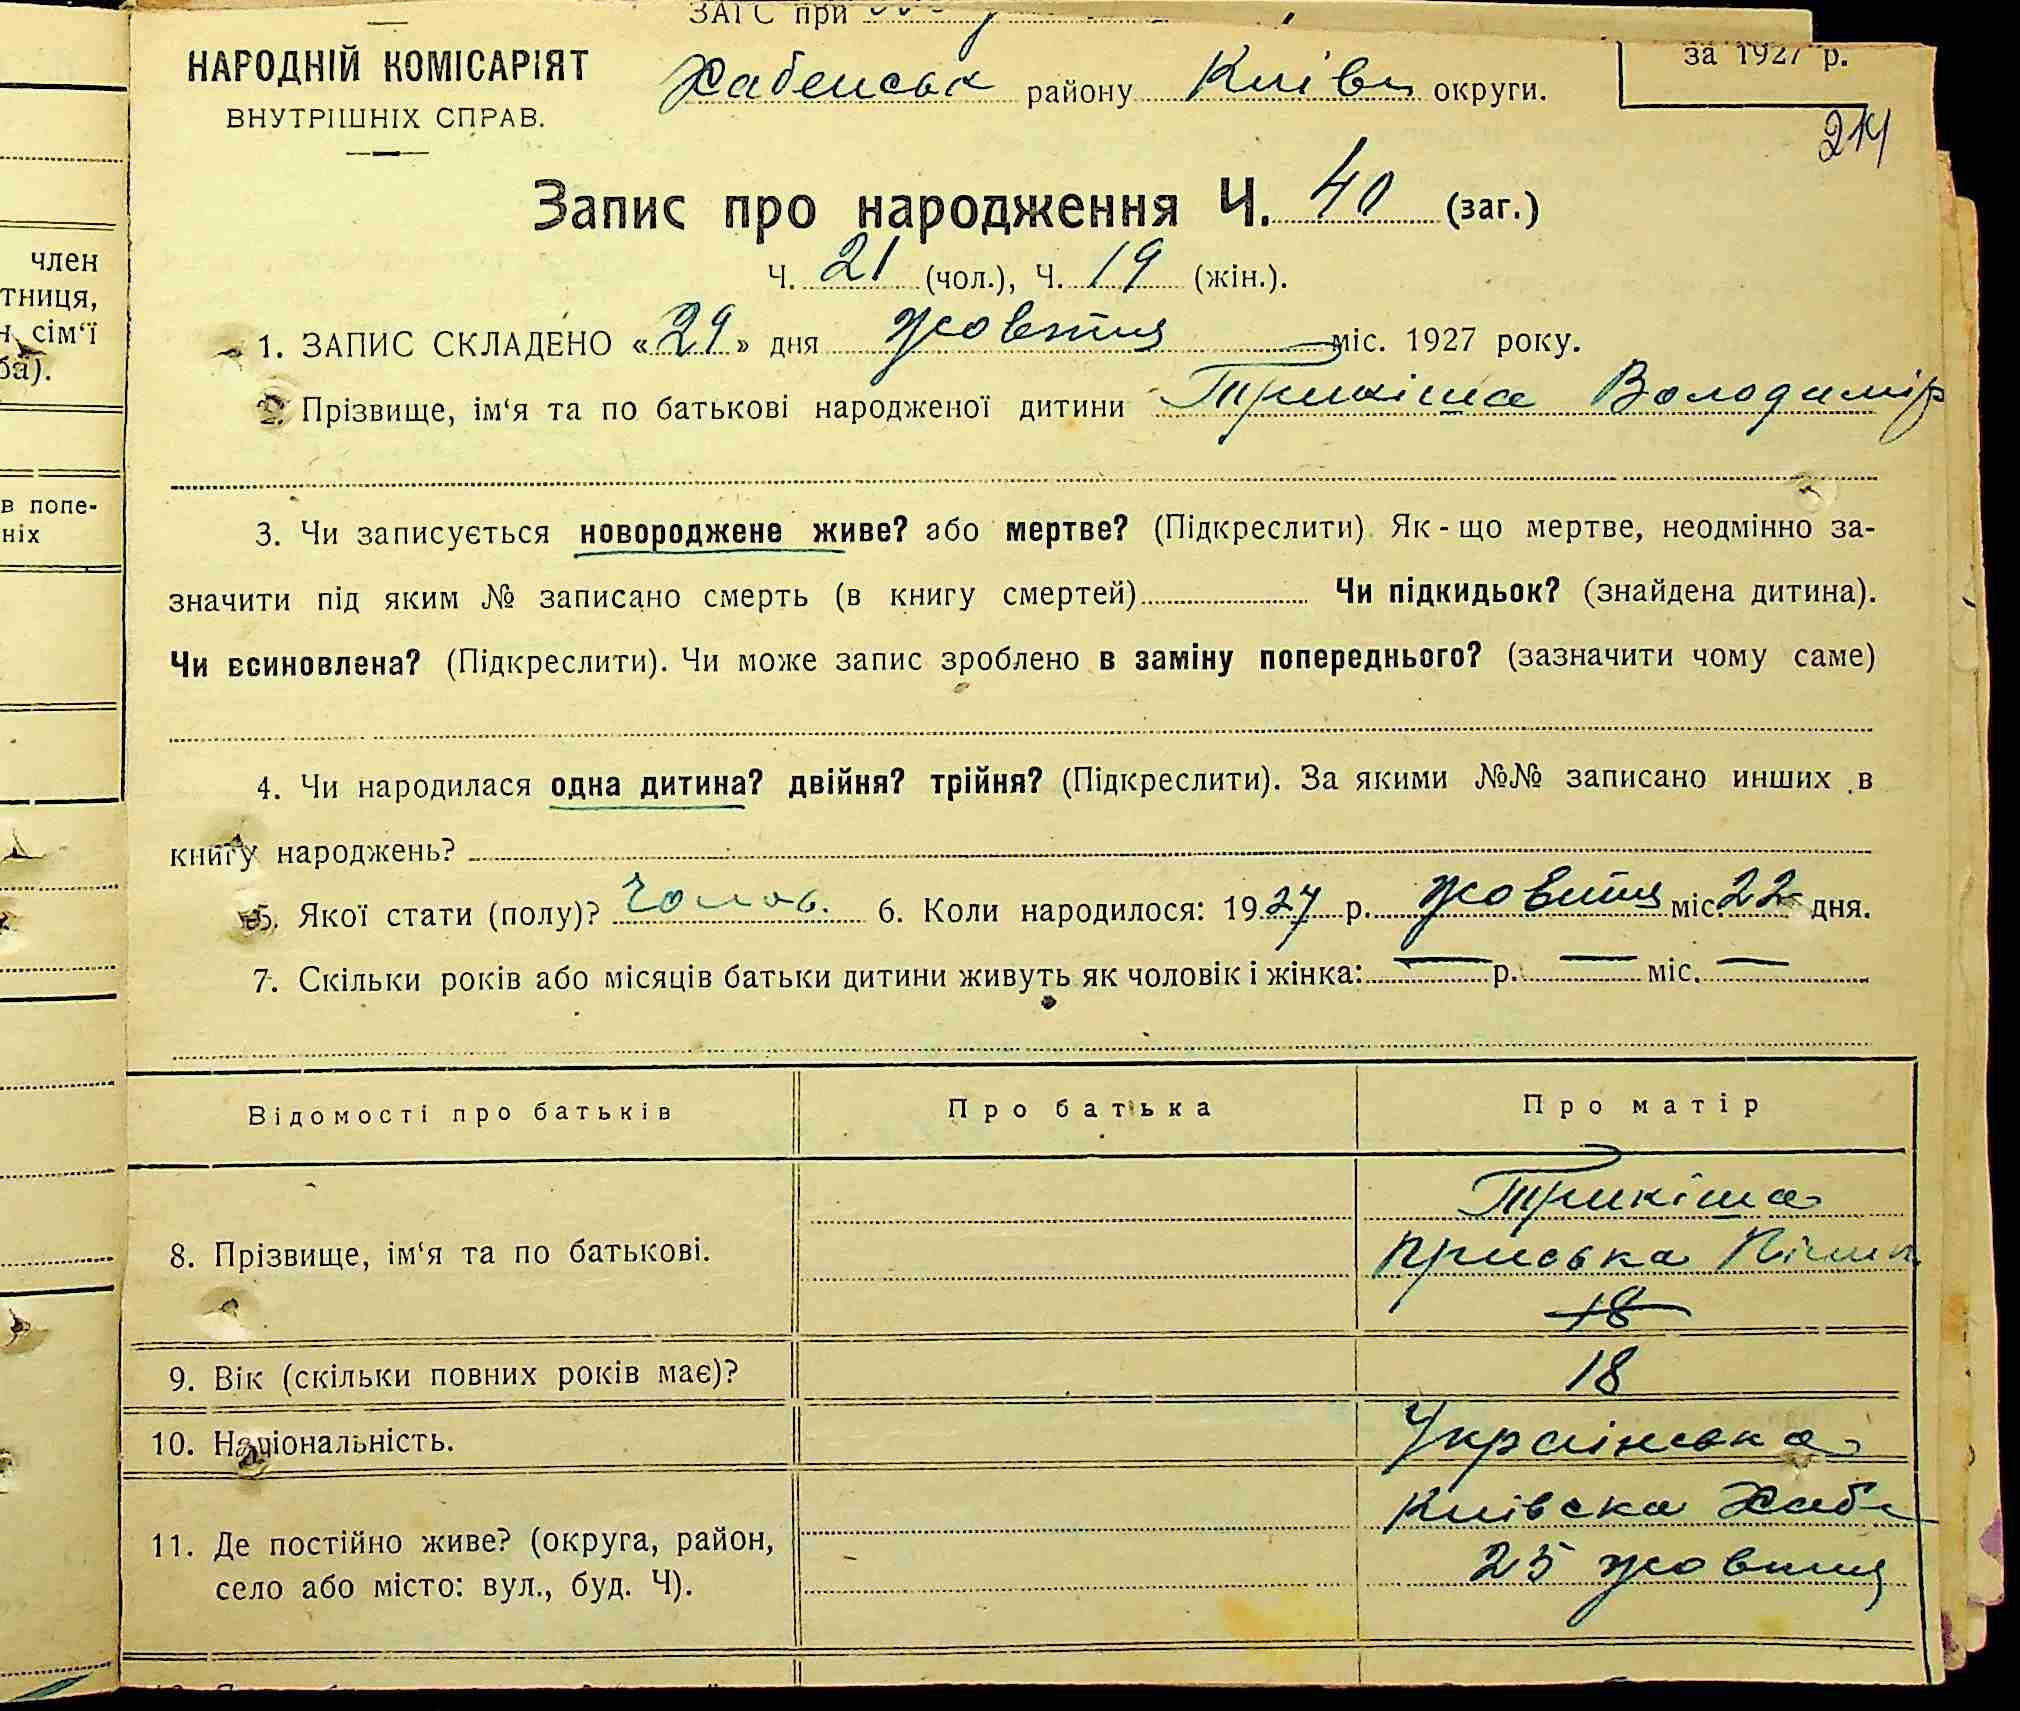 ЗАГС при
НАРОДНІЙ КОМІСАРІЯТ
ВНУТРІШНІХ СПРАВ.
Хабенськ району Київ округи.
за 1927 р.
214
Запис про народження Ч. 40 (заг.)
Ч. 21 (чол.), Ч. 19 (жін.).
1. ЗАПИС СКЛАДЕНО «29» дня жовтня міс. 1927 року.
2. Прізвище, ім‘я та по батькові народженої дитини Трикіша Володимір
3. Чи записується новороджене живе? або мертве? (Підкреслити). Як - що мертве, неодмінно за-
значити під яким № записано смерть (в книгу смертей) Чи підкидьок? (знайдена дитина).
Чи всиновлена? (Підкреслити). Чи може запис зроблено в заміну попереднього? (зазначити чому саме)
4. Чи народилася одна дитина? двійня? трійня? (Підкреслити). За якими №№ записано инших в
книгу народжень?
5. Якої стати (полу)? Чолов. 6. Коли народилося: 1927 р. жовтня міс. 22 дня.
7. Скільки років або місяців батьки дитини живуть як чоловік і жінка: — р. — міс. —
Відомості про батьків Про батька Про матір
8. Прізвище, ім‘я та по батькові.
Трикіша
Приська
18
9. Вік (скільки повних років має)? 18
10. Національність. Українська
11. Де постійно живе? (округа, район,
село або місто: вул., буд. Ч).
Київска Хабе
25 жовтня
член
тниця,
н сім‘ї
ба).
в попе-
ніх